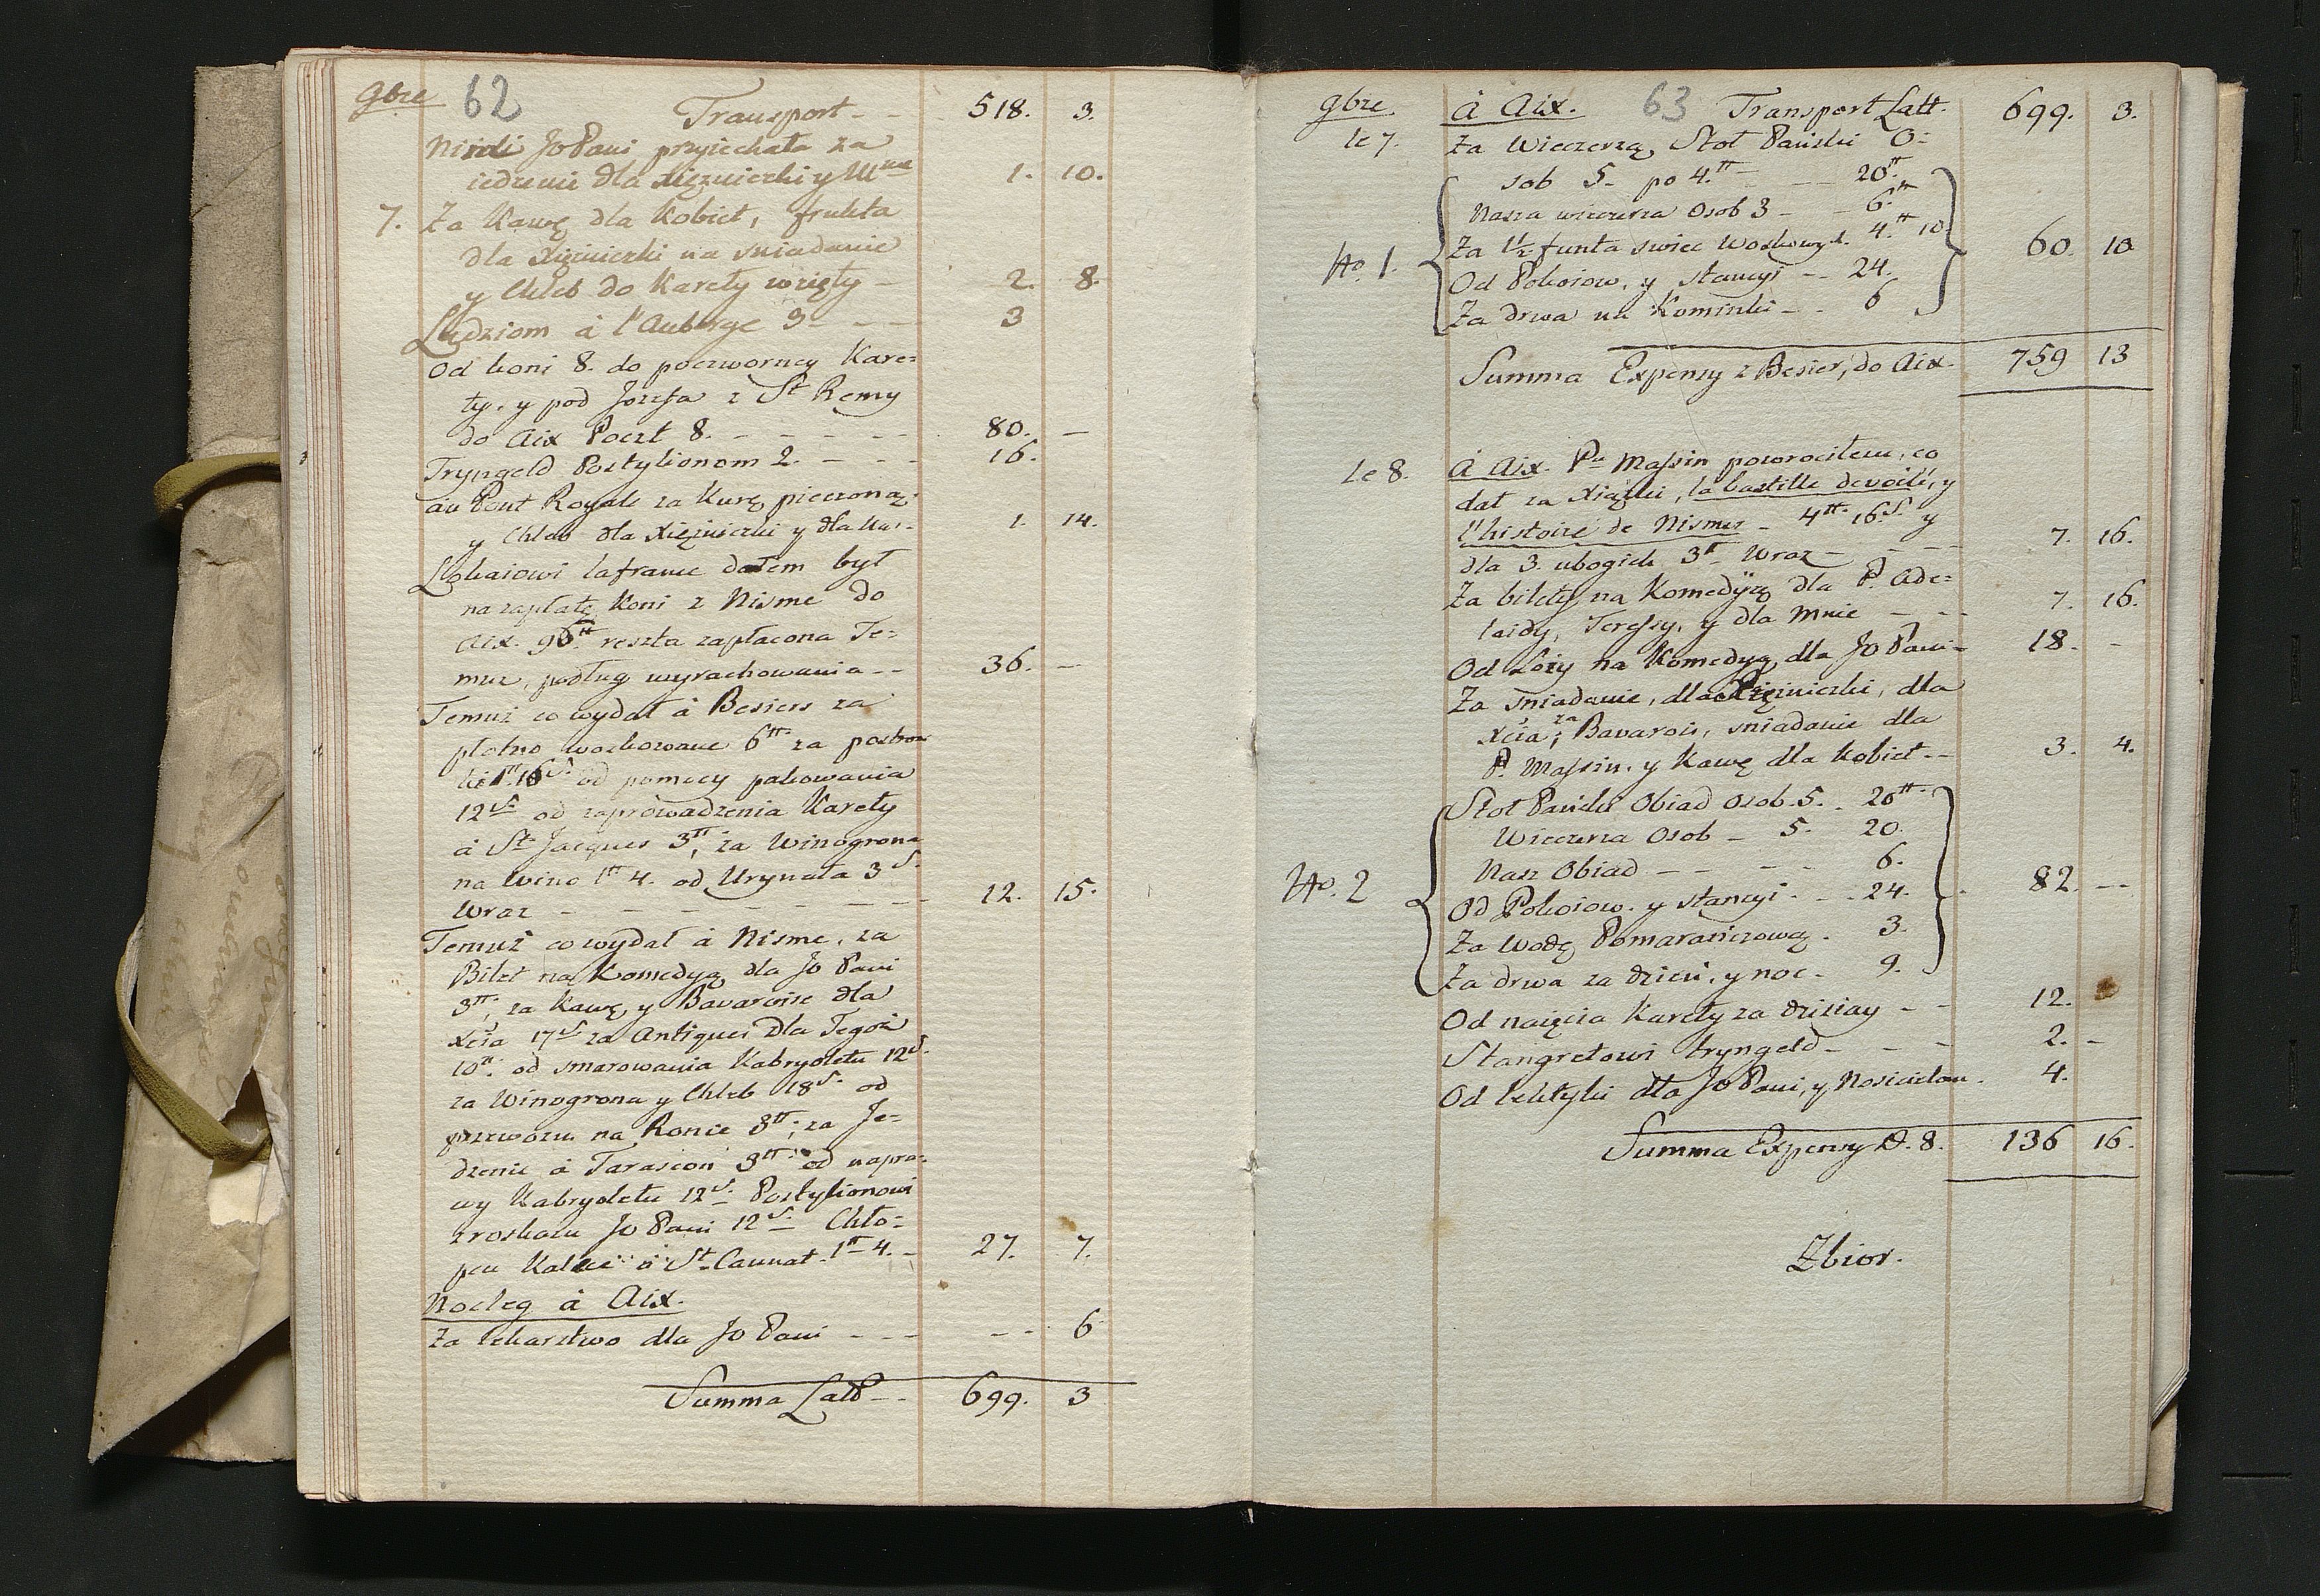 9bre 62 Transport - - 518. 3.
Nizeli JO Pani przyiechała za
iedzenie dla Xiężniczki y M<sup>me</sup> 1. 10.
7. Za Kawę dla Kobiet, frukta
dla Xiężniczki na sniadanie
y Chleb do Karety wzięty - 2. 8.
Ludziom à l'Auberge 3 - - - 3
Od koni 8. do poczworney Kare=
ty, y pod Jozefa z St Remy
do Aix Poczt 8. - - - - - 80. -
Tryngeld Postylionom 2. - - - 16.
au Pont Royale za Kurę pieczoną
y Chleb dla Xiężniczki y dla 1. 14.
Lokaiowi lafrance dałem był
na zapłatę Koni z Nisme do
Aix. 96tt reszta zapłacona Te=
muz, podług wyrachowania - - 36. -
Temuż co wydał à Besiers za
płotno woskowane 6tt za postron
ki 1tt 16s. od pomocy pakowania
12s. od zaprowadzenia Karety
à St Jacques 3tt; za Winogrona
na Wino 1tt 4. od Urynała 3s.
Wraz - - - - - - - - 12. 15.
Temuż co wydał à Nisme, za
Bilet na Komedyą dla JO Pani
3tt; za Kawę y Bavaroise dla
Xcia 17s za Antiques dla Tegoż
10tt. od smarowania Kabryoletu 12s.
za Winogrona y Chleb 18s. od
przewozu na Ronie 3tt; za Je=
dzenie à Tarascon 3tt. od napra=
wy Kabryoletu 12s. Postylionowi
z roskazu JO Pani 12s. Chło=
pcu Kalece à St Cannat. 1tt 4. - 27. 7.
Nocleg à Aix.
Za lekarstwo dla JO Pani - - - - - 6
Summa Latt - - 699. 3
9bre à Aix. 63 Transport Latt. 699. 3.
le 7. Za Wieczerzą Stoł Pański O=
sob 5. po 4.tt - - - 20tt
Nasza wieczerza Osob 3 - - 6.tt
Za 1 1/2 funta swiec Woskowych. 4.tt 10.
No. 1. 60. 10
Od Pokoiow, y stancyi - - 24.
Za drwa na Kominki - - 6
Summa Expensy z Besier, do Aix. 759 13
Le 8. à Aix. Pu Massin powrociłem, co
dał za Xiązki, la bastille devoilé, y
l'histoire de Nismes - 4tt 16s. y
dla 3. ubogich 3tt Wraz - - - - 7. 16.
Za bilety na Komedyią dla P. Ade=
laidy, Teressy, y dla Mnie - - - 7. 16.
Od Loży na Komedyą, dla JO Pani - 18. -
Za sniadanie, dla Xiężniczki, dla
Xcia; za Bavarois, sniadanie dla
P. Massin, y Kawę dla Kobiet - - 3. 4.
Stoł Pański Obiad Osob. 5. - 20tt
Wieczerza Osob - 5. 20.
Nasz Obiad - - - - - 6.
No. 2 82. - -
Od Pokoiow. y stancyi. - - 24.
Za Wodę Pomarańczową. 3.
Za drwa za dzień, y noc - 9.
Od naięcia Karety za dzisiay - - 12.
Stangretowi tryngeld - - - 2. -
Od lektyki dla JO Pani, y Nosicielom. 4.
Summa Expensy D. 8. 136 16.
Zbior.